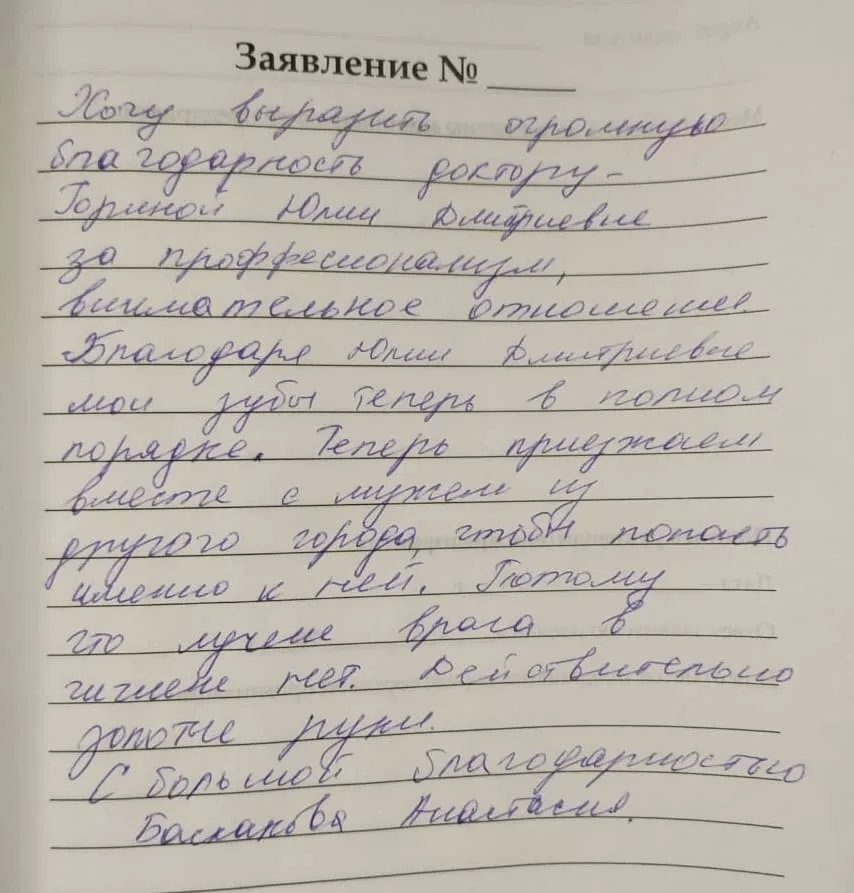 Заявление № ____
Хочу выразить огромную
благодарность доктору –
Гориной Юлии Дмитриевне
за проффесионализм,
внимательное отношение.
Благодаря Юлии Дмитриевне
мои зубы теперь в полном
порядке. Теперь приезжаем
вместе с мужем из
другого города, чтобы попасть
именно к ней. Потому
что лучше врача в
гигиене нет. Действительно
золотые руки.
С большой благодарностью
Баскакова Анастасия.